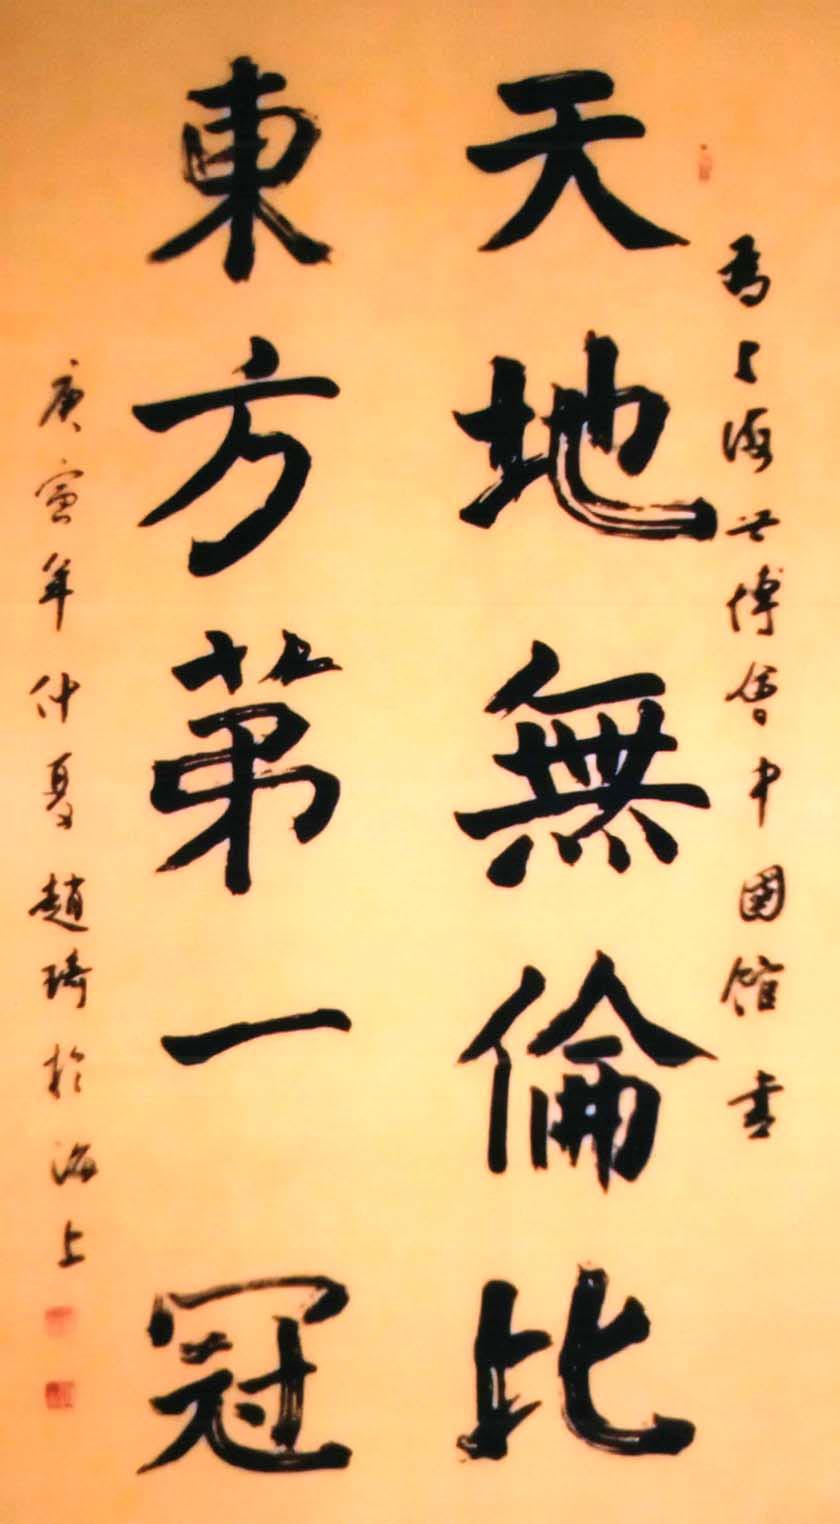 為上海世博會中國館書
天地無倫比
東方第一冠
庚寅年仲夏趙琦於海上